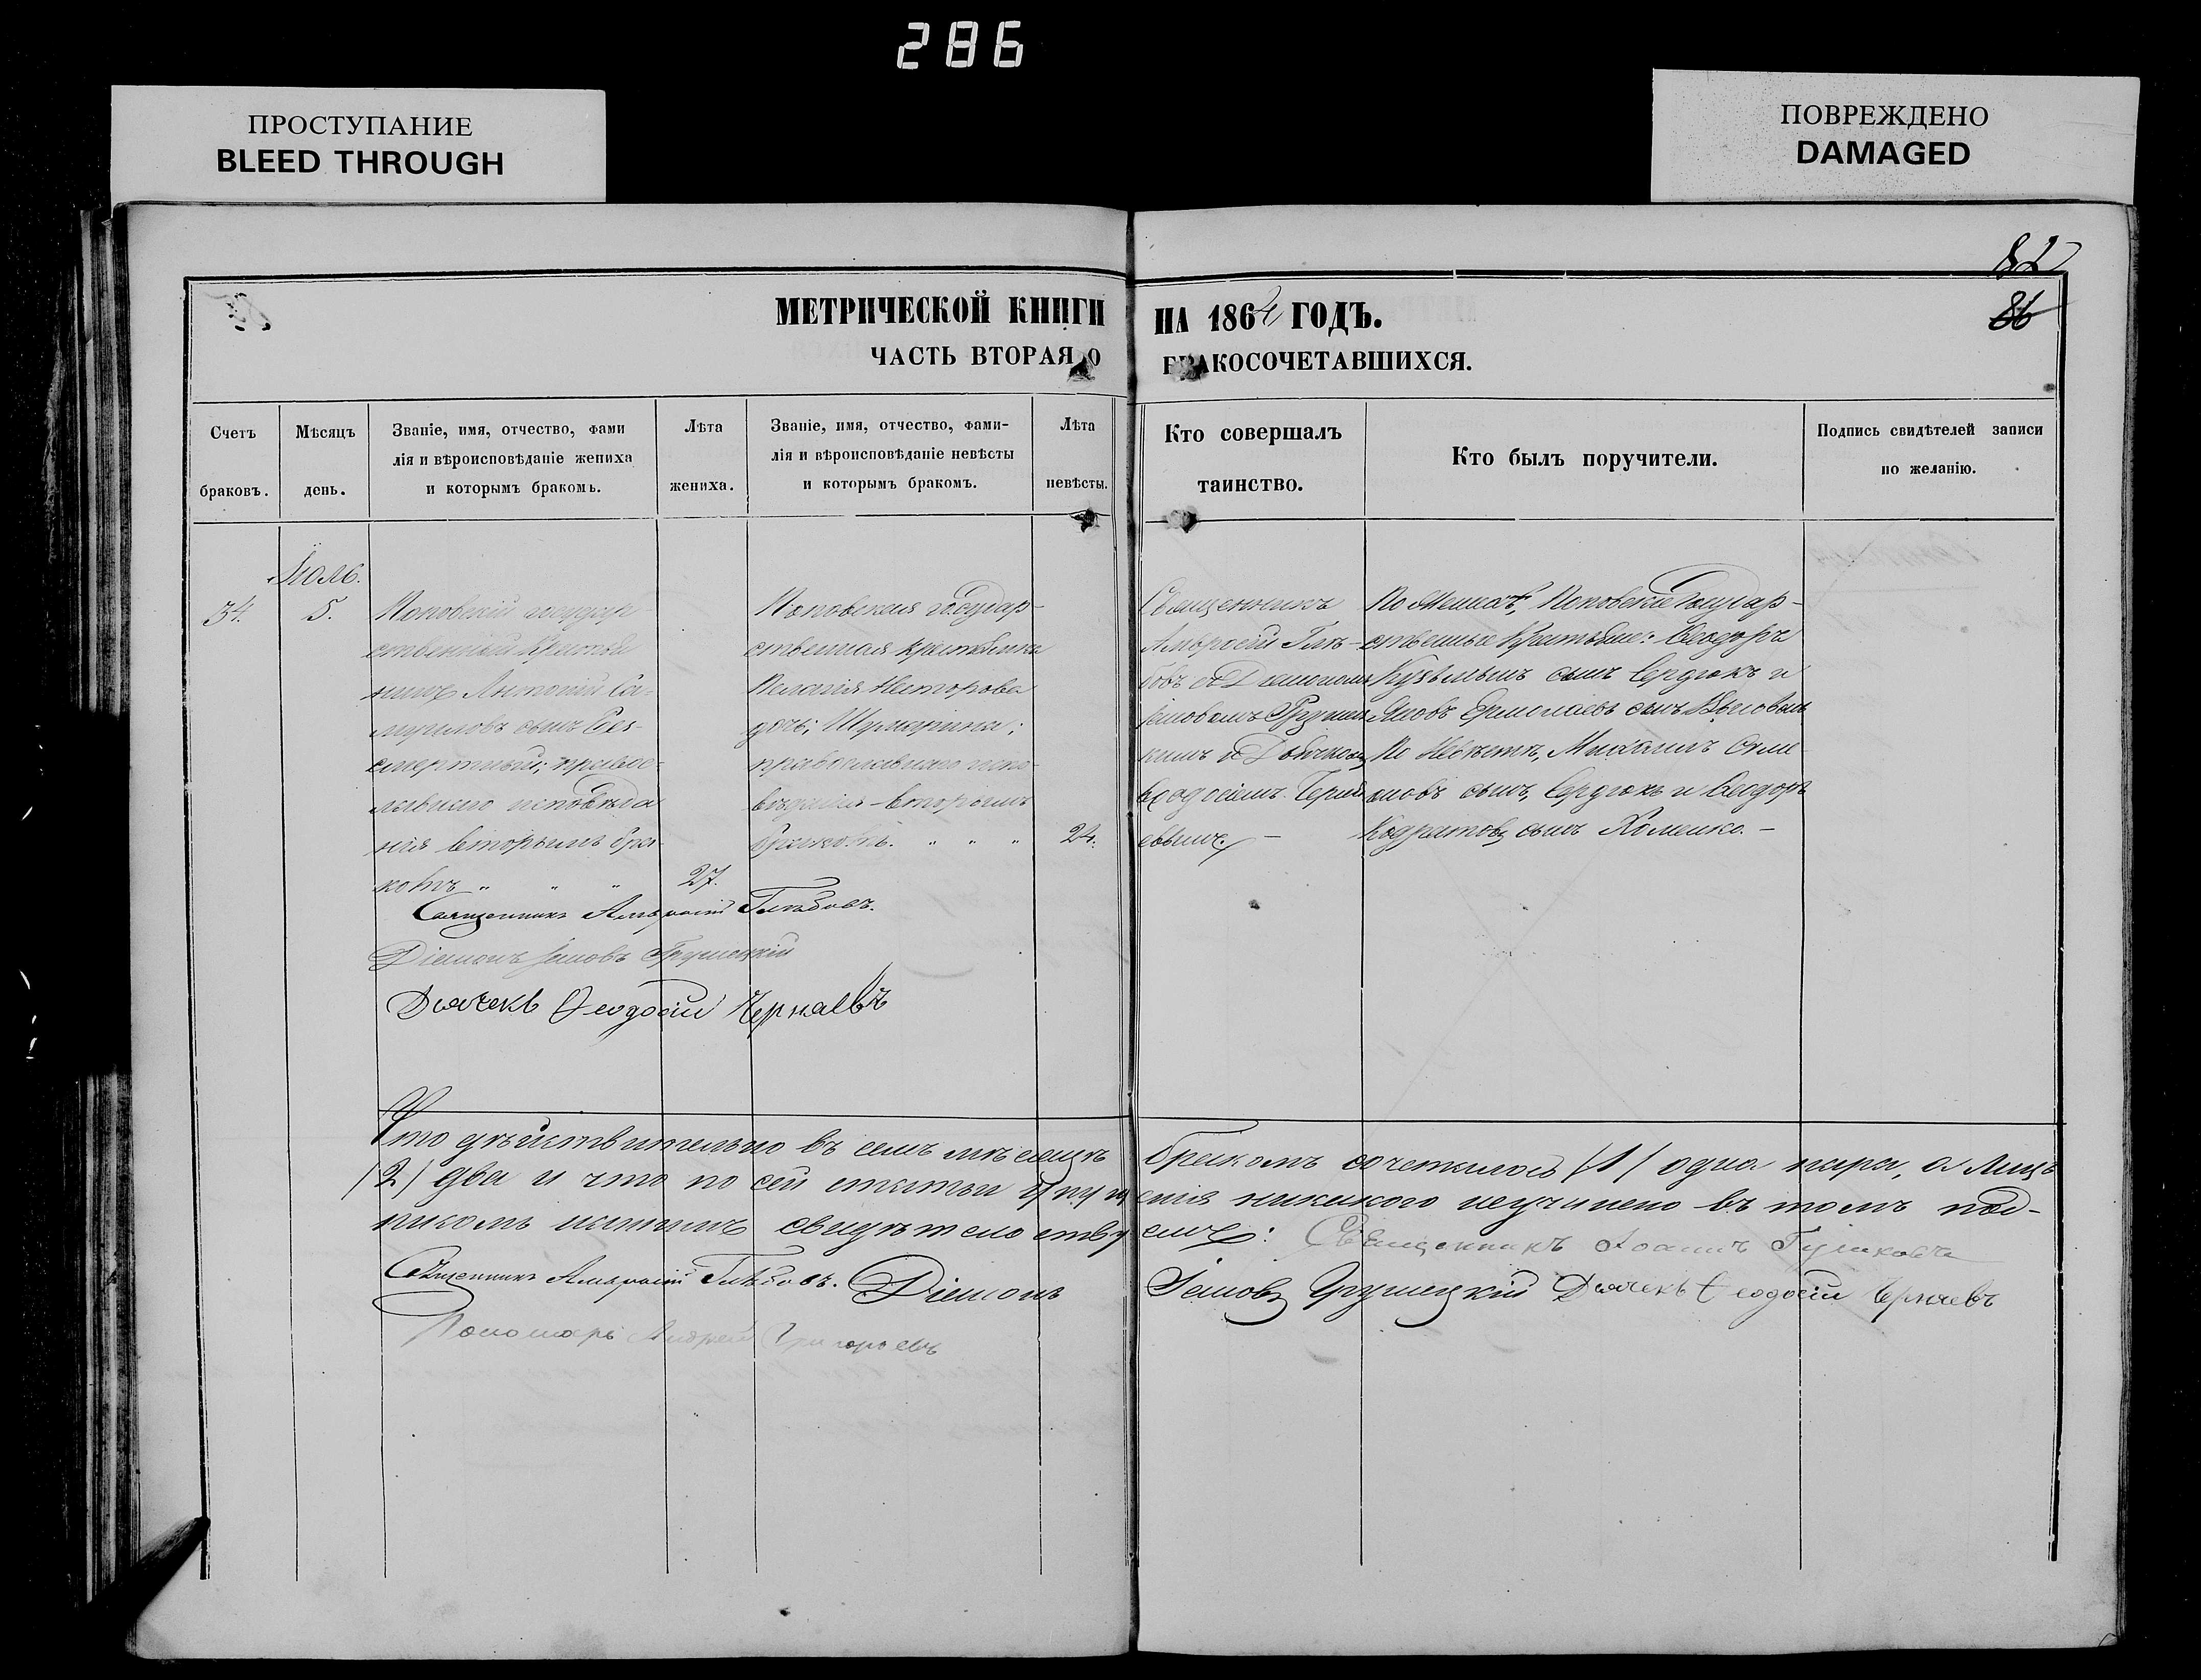 286
ПРОСТУПАНИЕ
BLEED THROUGH
ПОВРЕЖДЕНО
DAMAGED
82
86
МЕТРИЧЕСКОЙ КНИГИ НА 1864 ГОДЪ.
ЧАСТЬ ВТОРАЯ О БРАКОСОЧЕТАВШИХСЯ.
Счетъ
браковъ.
Мѣсяцъ
день.
Званіе, имя, отчество, фами
лія и вѣроисповѣданіе жениха
и которымъ бракомъ.
Лѣта
жениха.
Званіе, имя, отчество, фами-
лія и вѣроисповѣданіе невѣсты
и которымъ бракомъ.
Лѣта
невѣсты.
Кто совершалъ
таинство.
Кто былъ поручители.
Подпись свидѣтелей записи
по желанію.
Іюль.
34.
5.
Поповскій государ-
ственный крестья
нинъ Антоній Са-
муиловъ сынъ Без-
смертный; правос-
лавнаго исповѣда
нія вторымъ бра-
комъ " " "
27.
Поповская государ-
ственная крестьянка
Пелагія Несторова
дочь;
православнаго испо-
вѣданія вторымъ
бракомъ. " " "
24.
Священникъ
Амвросій Глѣ-
бовъ съ Діакономъ
Іаковомъ Грушец-
кимъ и Дьячкомъ
Ѳеодосіемъ Черня
евымъ. –
По Женихѣ, Поповскіе Государ-
ственные Крестьяне: Ѳеодоръ
Кузьминъ сынъ Сердюкъ и
Яковъ Ермолаевъ сынъ
По Невѣстѣ, Михаилъ
сынъ, Сердюкъ и Ѳеодоръ
Кодратовъ сынъ Хоменко. –
Священникъ Амвросій Глѣбовъ.
Діаконъ Іаковъ Грушецкій
Дьячекъ Ѳеодосій Черняевъ
Что дѣйствительно въ семъ мѣсяцѣ бракомъ сочеталось /1/ одна пара, а лицъ
/2/ два и что по сей статьи упущенія никакого неучинено въ томъ под-
писомъ нашимъ свидѣтельствуемъ: Священникъ Іоаннъ
Священникъ Амвросій Глѣбовъ. Діаконъ Іаковъ Грушецкій Дьячекъ Ѳеодосій Черняевъ
Пономарь Андрей Григорьевъ